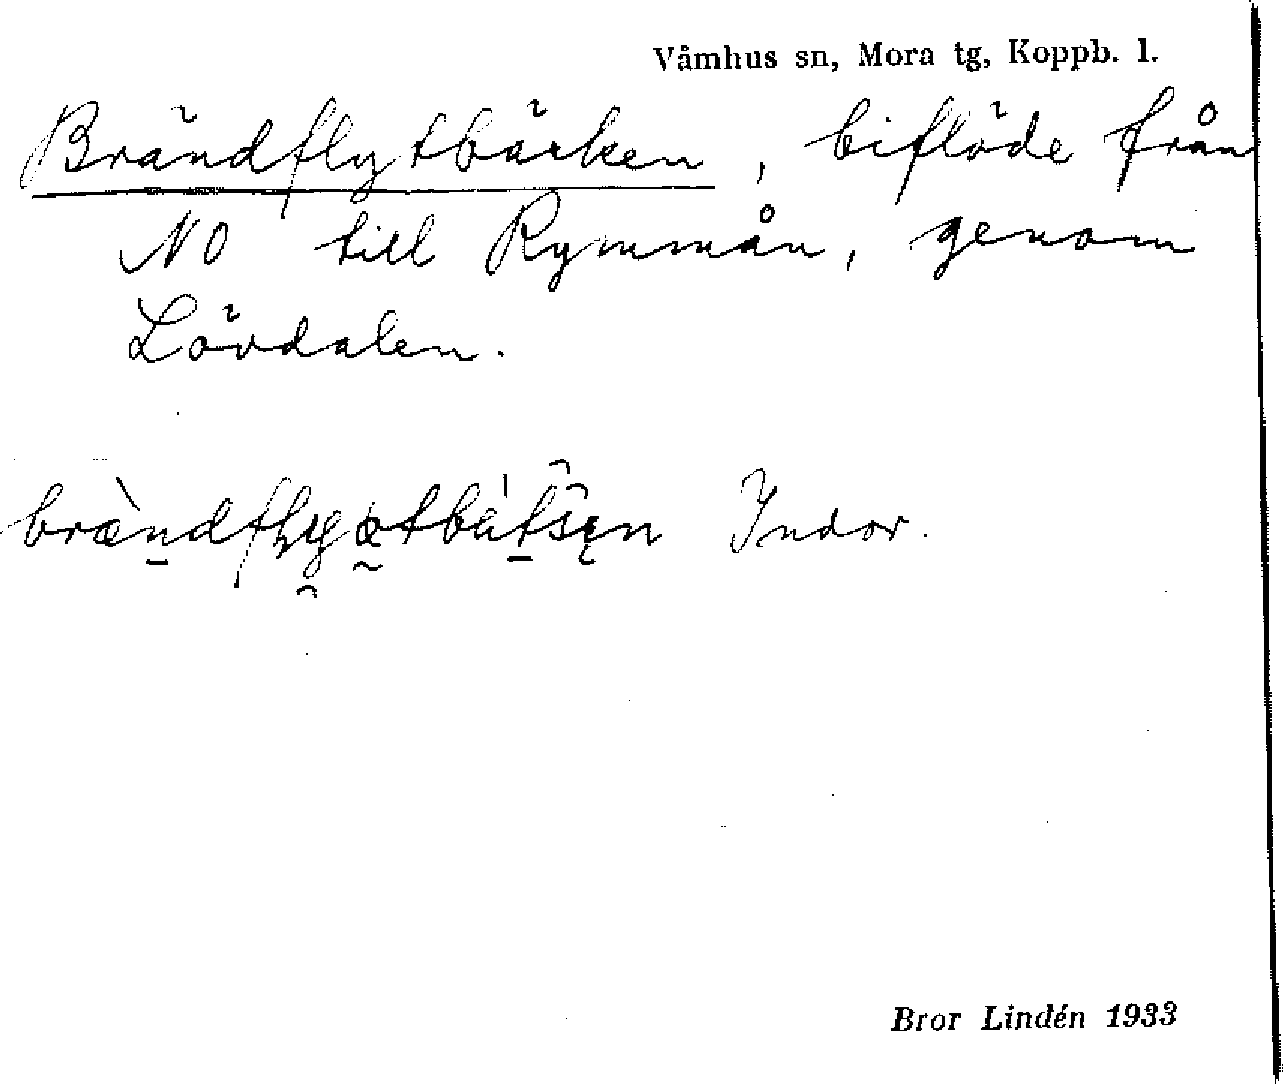 Våmhus sn, Mora tg, Koppb. l.
Brändflytbäcken, biflöde från
NO till Rymmån, genom
Lövdalen.
Indor.
Bror Lindén 1933